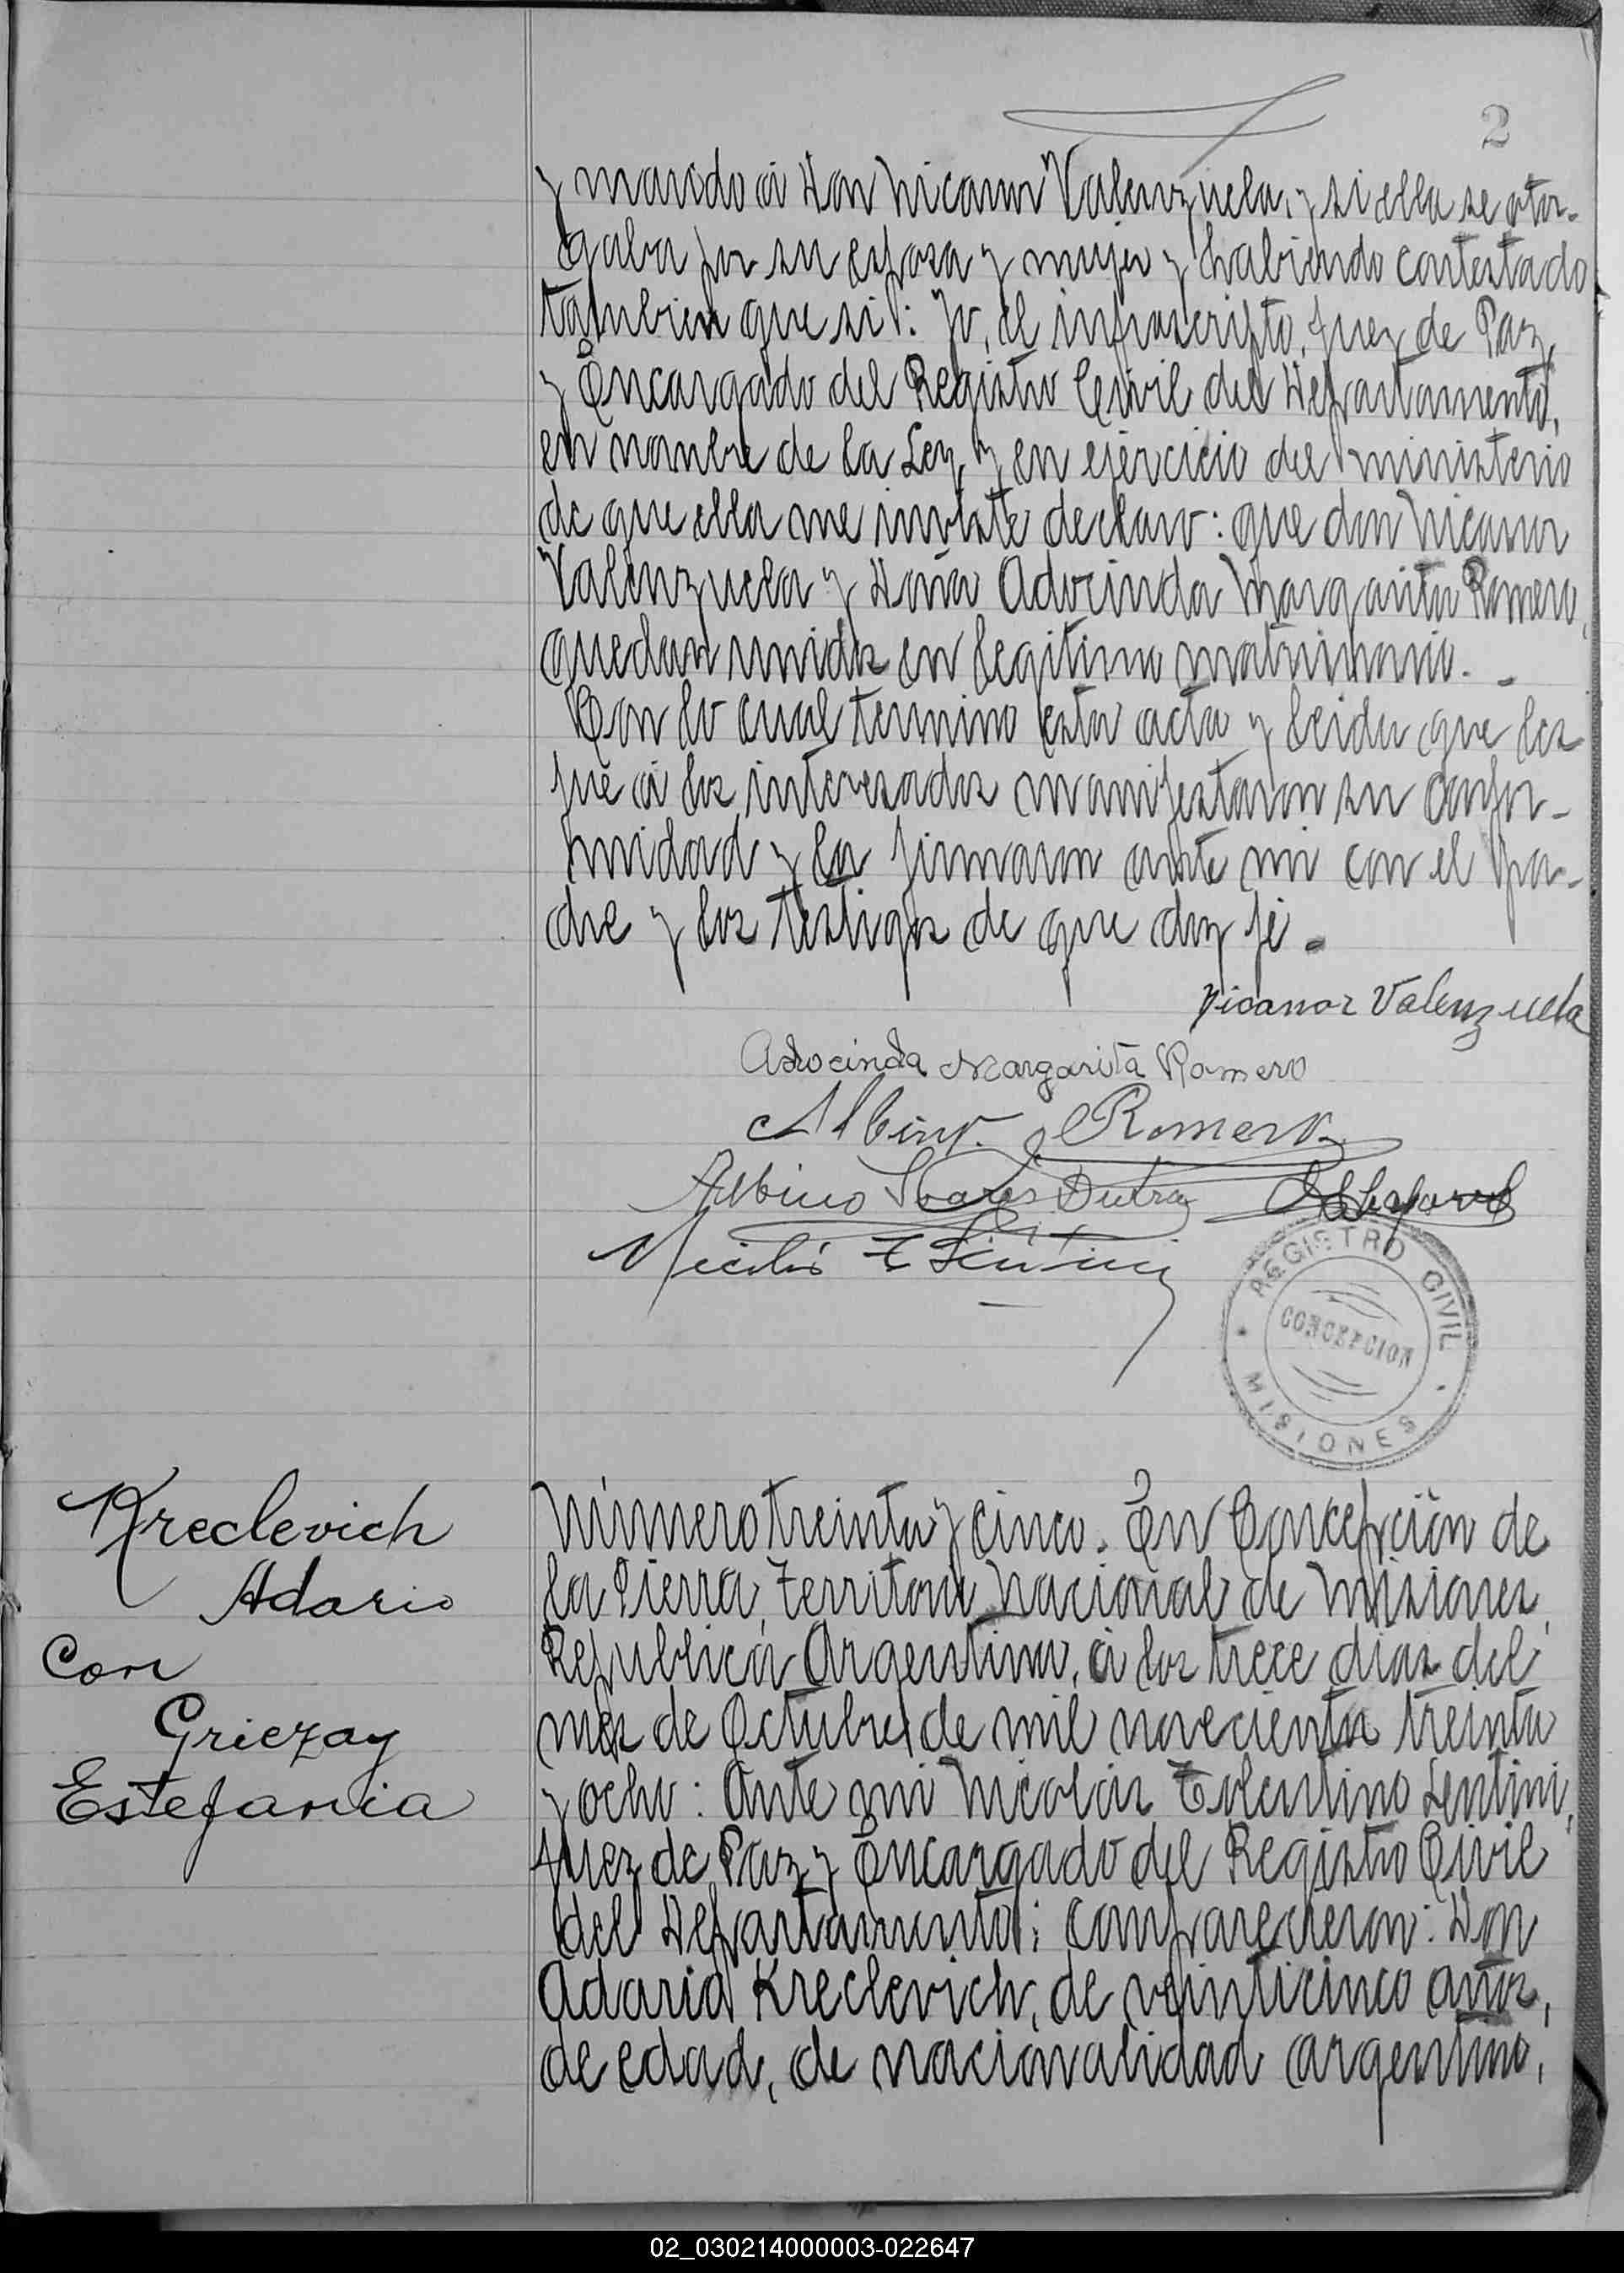 2
y marido á Don Nicanor Valenzuela, y si ella se otor-
gaba por su esposa y mujer y habiendo contestado
tambien que si: Yo, el infrascripto, Juez de Paz
y Encargado del Registro Civil del Departamento,
en nombre de la Ley y en ejercicio del ministerio
de que ella me inviste declaro: que don Nicanor
Valenzuela y Doña Adocinda Margarita Romero,
quedan unidos en legitimo matrimonio. -
Con lo cual termino esta acta y leida que les
fue á los interesados manifestaron su confor-
midad y la firmaron ante mi con el pa-
dre y los testigos de que doy fé. -
Nicanor Valenzuela
Adocinda Margarita Romero
Albino Romero
Albino Soares Dutra
Nicolás T Lentini
REGISTRO CIVIL
CONCEPCION
MISIONES
Kreclevich
Adario
Con
Griezay
Estefania
Número treinta y cinco. En Concepción de
la Sierra, Territorio Nacional de Misiones,
Republica Argentina, á los trece dias del
mes de Octubre de mil novecientos treinta
y ocho: Ante mi Nicolás Tolentino Lentini,
Juez de Paz y Encargado del Registro Civil
del Departamento; comparecieron: Don
Adario Kreclevich, de veinticinco años,
de edad, de nacionalidad argentino,
02_030214000003-022647